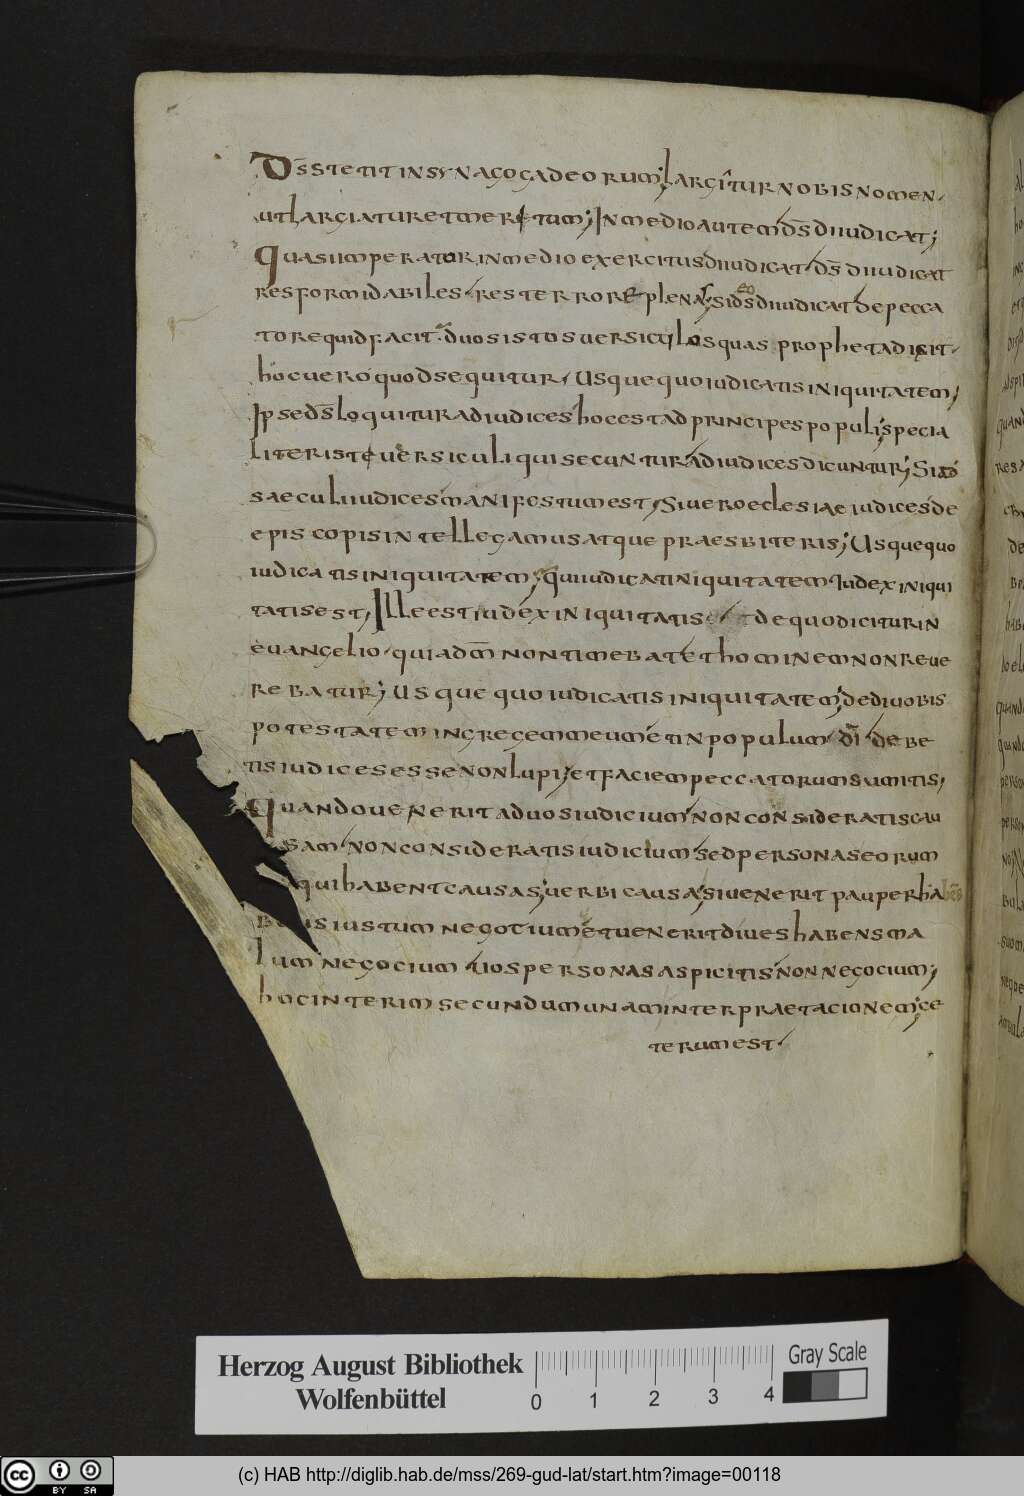 Ds̄ stetit in synagoga deorum; largitur nobis nomen
ut largiatur et meritum; In medio autem ds̄ diiudicat;
Quasi imperator in medio exercitus diiudicat ds̄ diiudicat
res formidabiles res terrore plena; si ds̄ diiudicat de pecca
tore quid facit duos istos versiculos quas propheta dixit
hoc vero quod sequitur Usquequo iudicatis iniquitatem
Ipse ds̄ loquitur ad iudices hoc est ad principes populi; specia
liter iste versiculi qui secuntur ad iudices dicuntur; Si
saeculi iudices manifestum est; Si vero eclesiae iudices de
episcopis intellegamus atque praesbiteris; Usquequo
iudicatis iniquitatem; qui iudicat iniquitatem Iudex iniqui
tatis est, Ille est iudex iniquitatis de quo dicitur in
evangelio quia dm̄ non timebat et hominem non reve
rebatur; Usquequo iudicatis iniquitatem; dedi vobis
potestatem in gregem meum et in populum di debe
tis iudices esse non lupi; et faciem peccatorum sumitis,
Quando venerit ad vos iudicium non consideratis cau
sam non consideratis iudicium sed personas eorum
qui habent causas; verbi causa; si venerit pauper ha
iustum negotium et venerit dives habens ma
lum negocium vos personas aspicitis non negocium;
hoc interim secundum unam interpraetacionem; ce
terum est
Herzog August Bibliothek
Wolfenbüttel
0 1 2 3 4
Gray Scale
cc BY SA
(c) HAB http://diglib.hab.de/mss/269-gud-lat/start.htm?image=00118